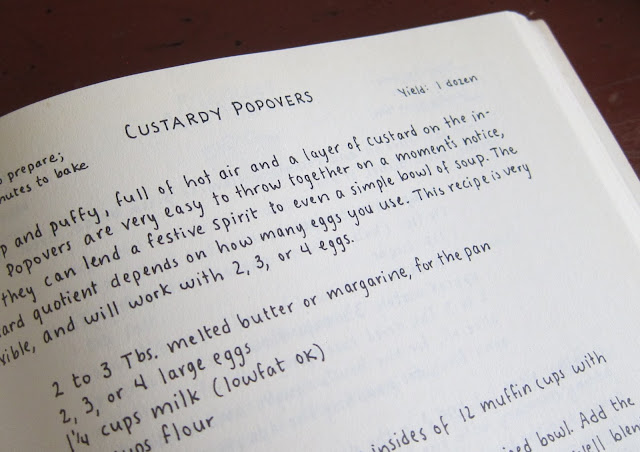 CUSTARDY POPOVERS
Yield: 1 dozen
prepare;
minutes to bake
and puffy, full of hot air and a layer of custard on the in-
Popovers are very easy to throw together on a moment's notice,
they can lend a festive spirit to even a simple bowl of soup. The
ard quotient depends on how many eggs you use. This recipe is very
xible, and will work with 2, 3, or 4 eggs.
2 to 3 Tbs. melted butter or margarine, for the pan
2, 3, or 4 large eggs
1¼ cups milk (lowfat ok)
ups flour
insides of 12 muffin cups with
bowl. Add the
well blen